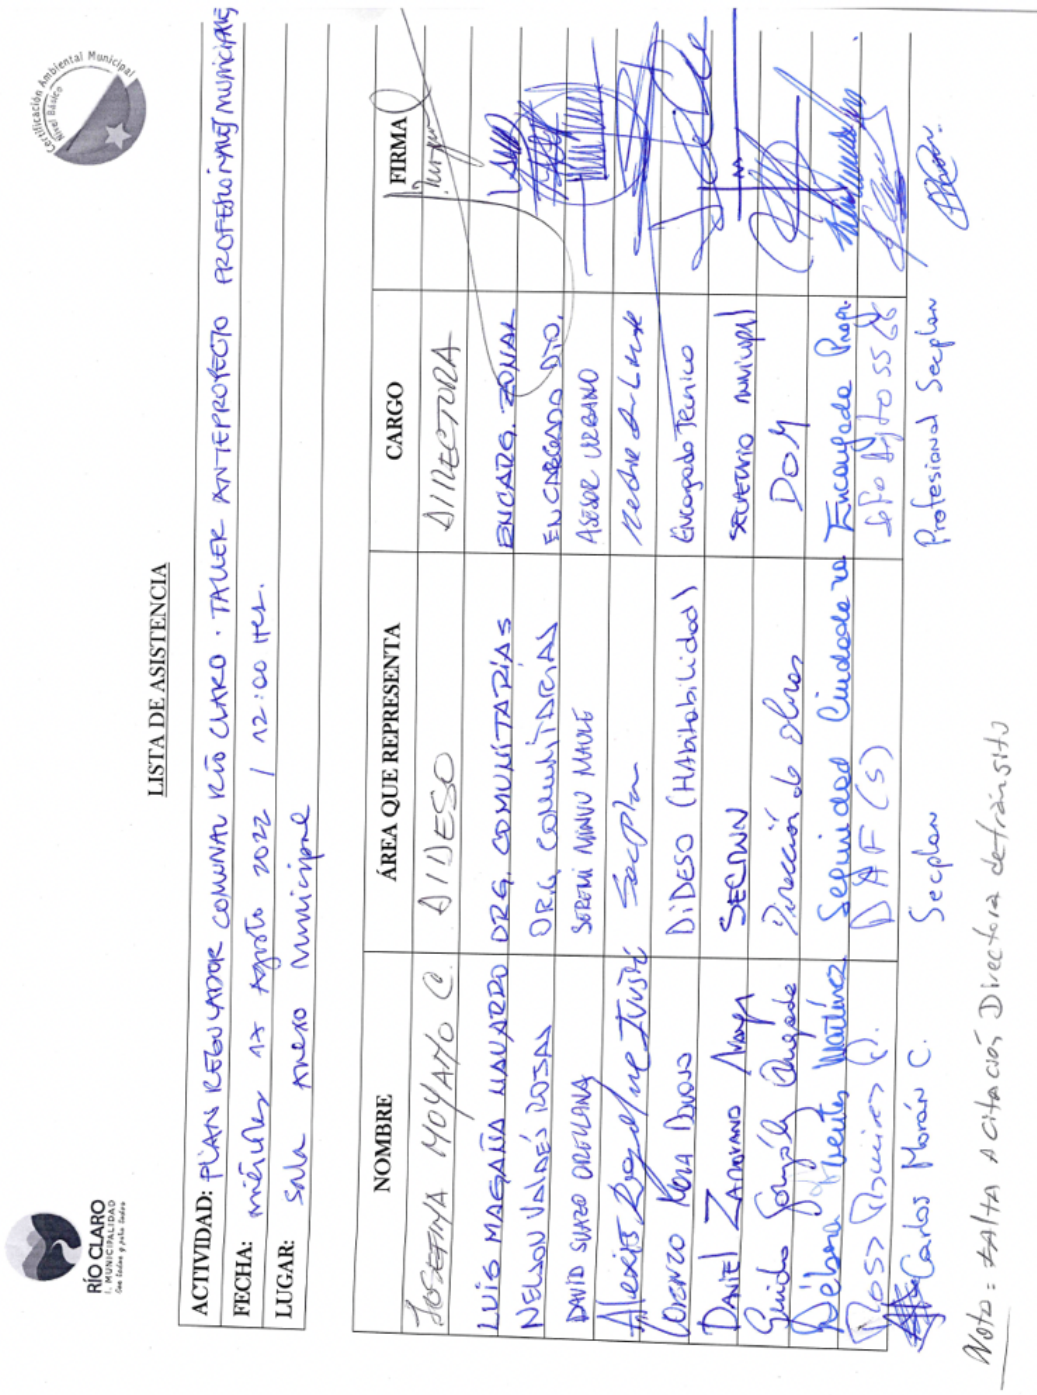 RÍO CLARO
I. MUNICIPALIDAD
Con todos y para todos
Certificación Ambiental Municipal
Nivel Básico
LISTA DE ASISTENCIA
ACTIVIDAD: PLAN REGULADOR COMUNAL RÍO CLARO. TALLER ANTEPROYECTO PROFESIONALES MUNICIPALES
FECHA: miércoles 17 Agosto 2022 / 12:00 Hrs.
LUGAR: Sala Anexo Municipal
NOMBRE ÁREA QUE REPRESENTA CARGO FIRMA
JOSEFINA MOYANO C. DIDESO DIRECTORA
LUIS MAGAÑA NAVARRO ORG. COMUNITARIAS ENCARG. ZONAL
NELSON VALDÉS ROJAS ORG. COMUNITARIAS ENCARGADO DTO.
DAVID SUAZO ORELLANA SEREMI MINVU MAULE ASESOR URBANO
Alexis Secplan
LORENZO MORA Donoso DIDESO (HAbitabilidad) Encargado Técnico
DANIEL ZAMORANO SECMUN SECRETARIO MUNICIPAL
Guido González Dirección de obras DOM
Débora Fuentes Martínez Seguridad Ciudadana Encargada Progr.
DAF (S)
Carlos Morán C. Secplan Profesional Secplan
Nota: FALTA A citación Directora de tránsito